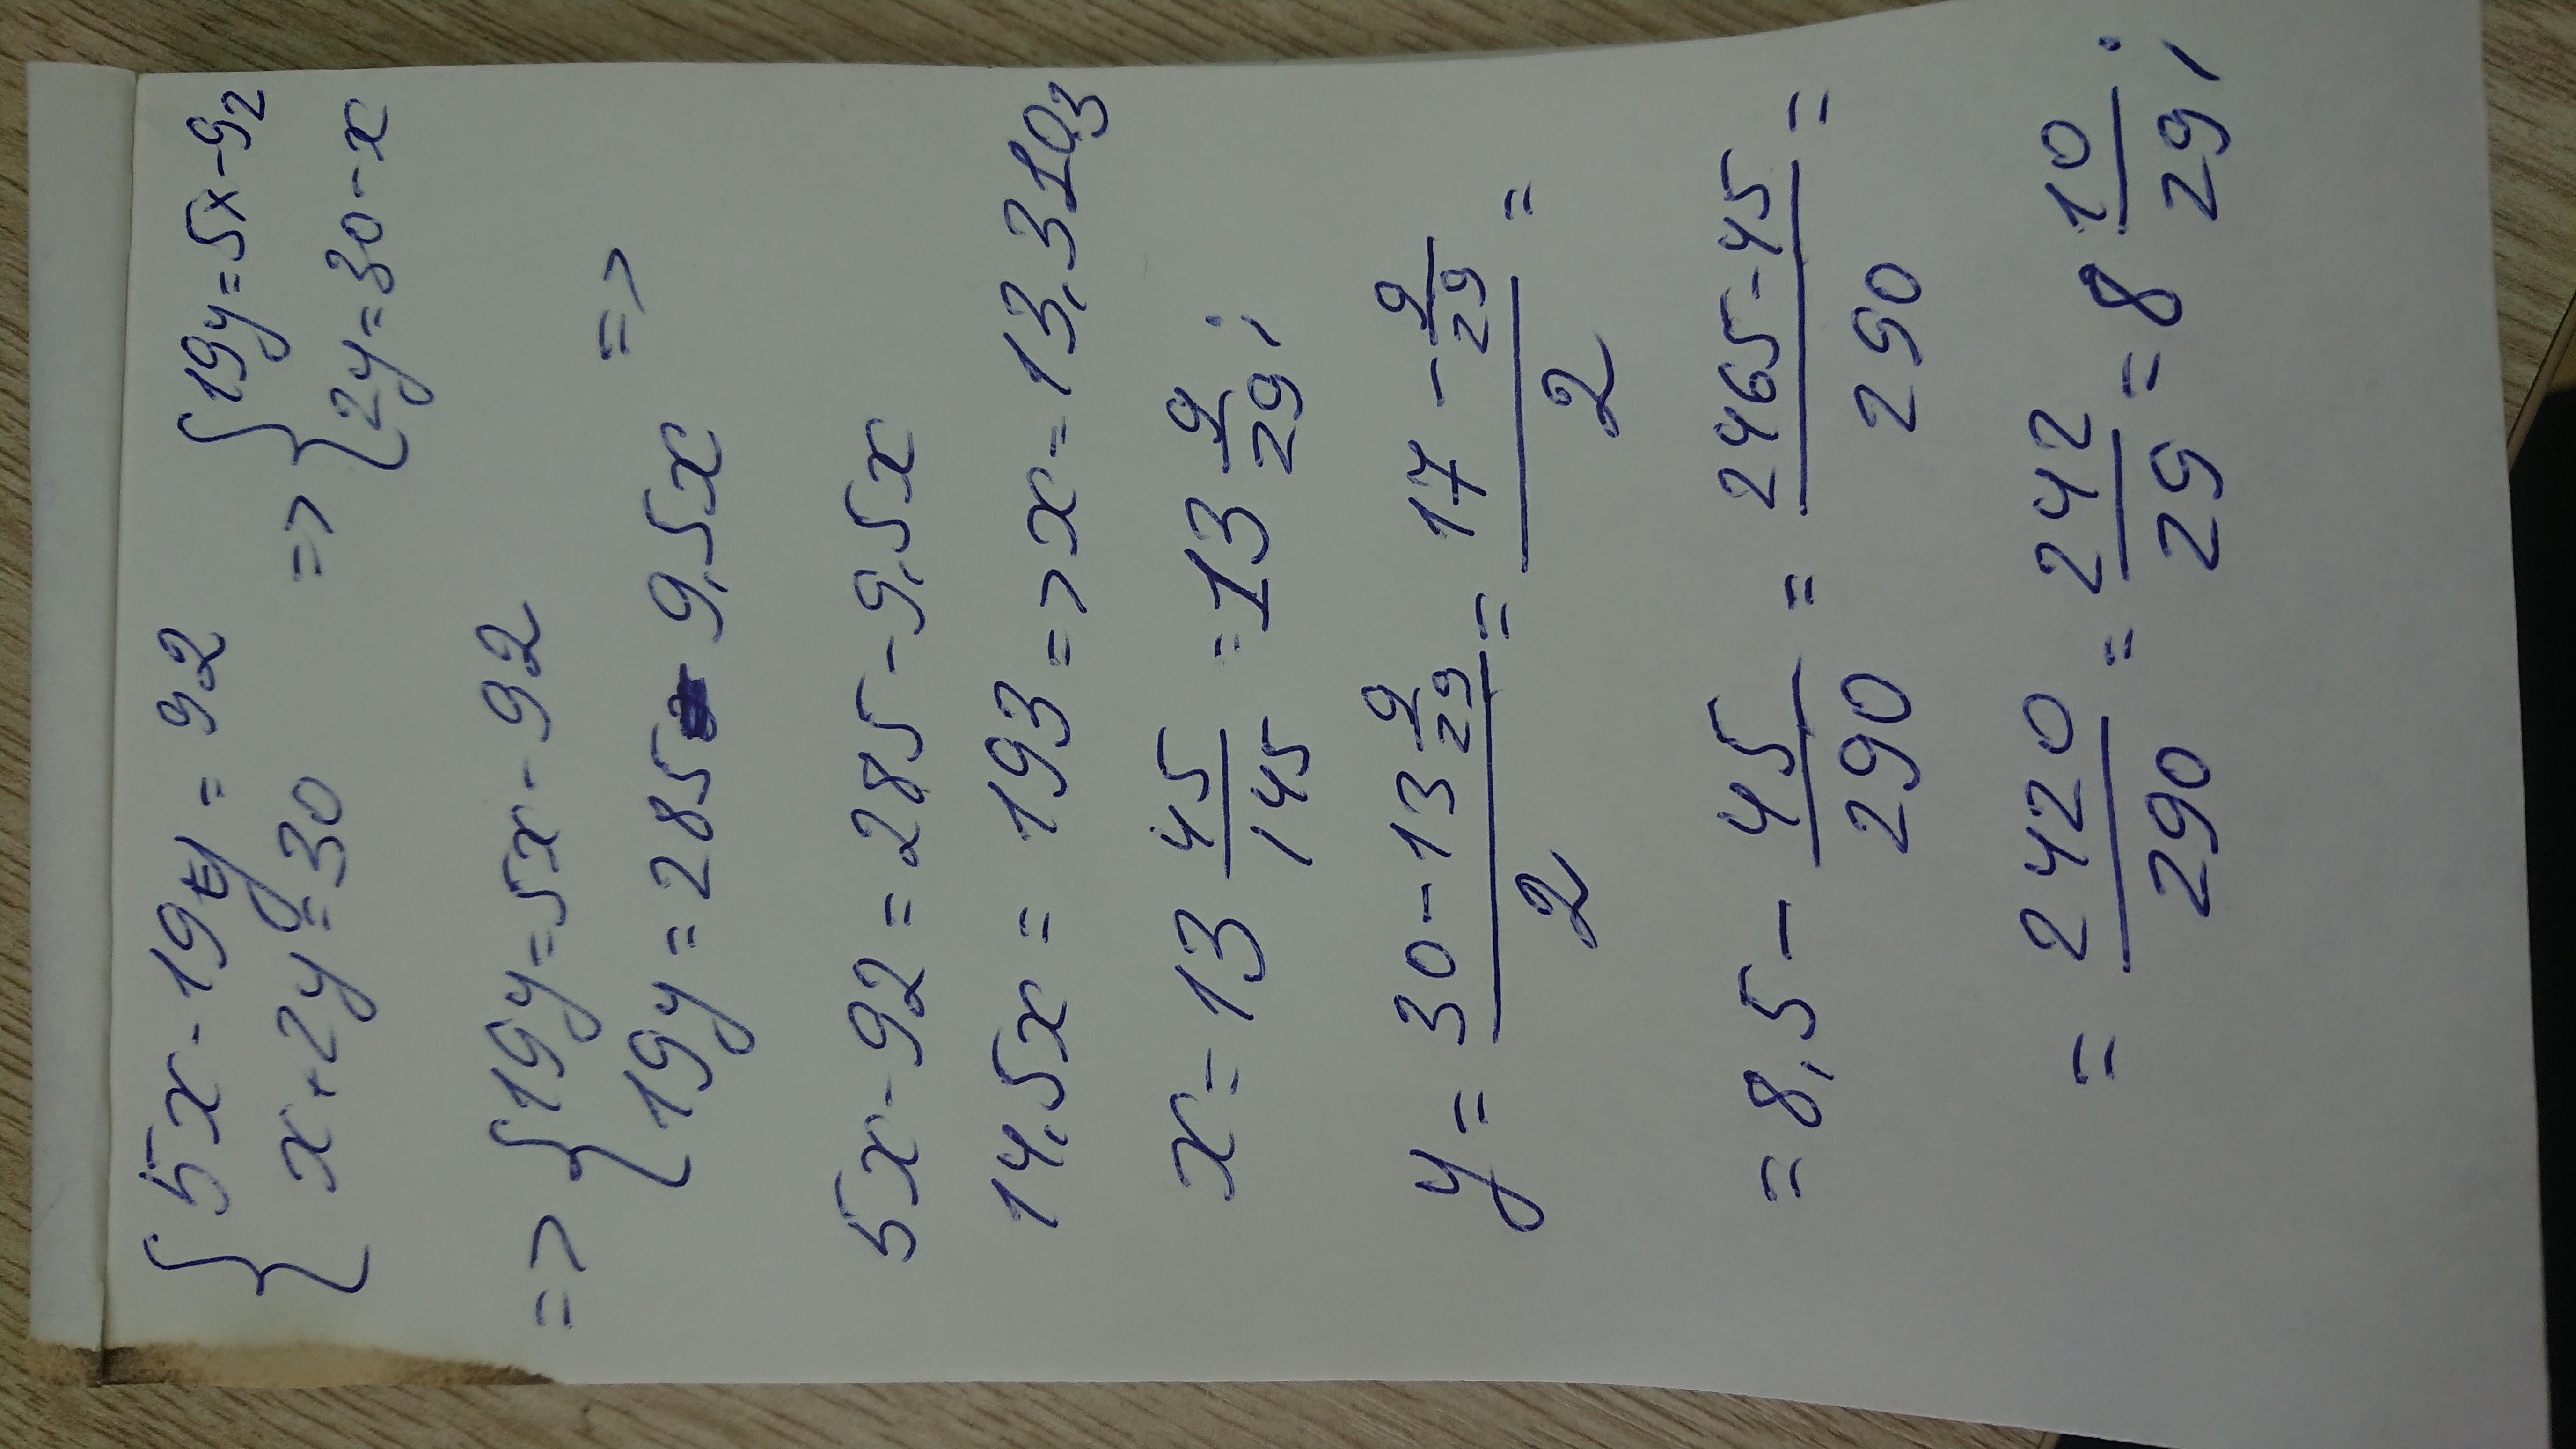 { 5x - 19y = 92 => { 19y = 5x - 92
x + 2y = 30 2y = 30 - x
=> { 19y = 5x - 92
19y = 285 - 9,5x =>
5x - 92 = 285 - 9,5x
14,5x = 193 => x = 13,3103
x = 13 45/145 = 13 9/29;
y = (30 - 13 9/29)/2 = (17 - 9/29)/2 =
= 8,5 - 45/290 = (2465 - 45)/290 =
= 2420/290 = 242/29 = 8 10/29;